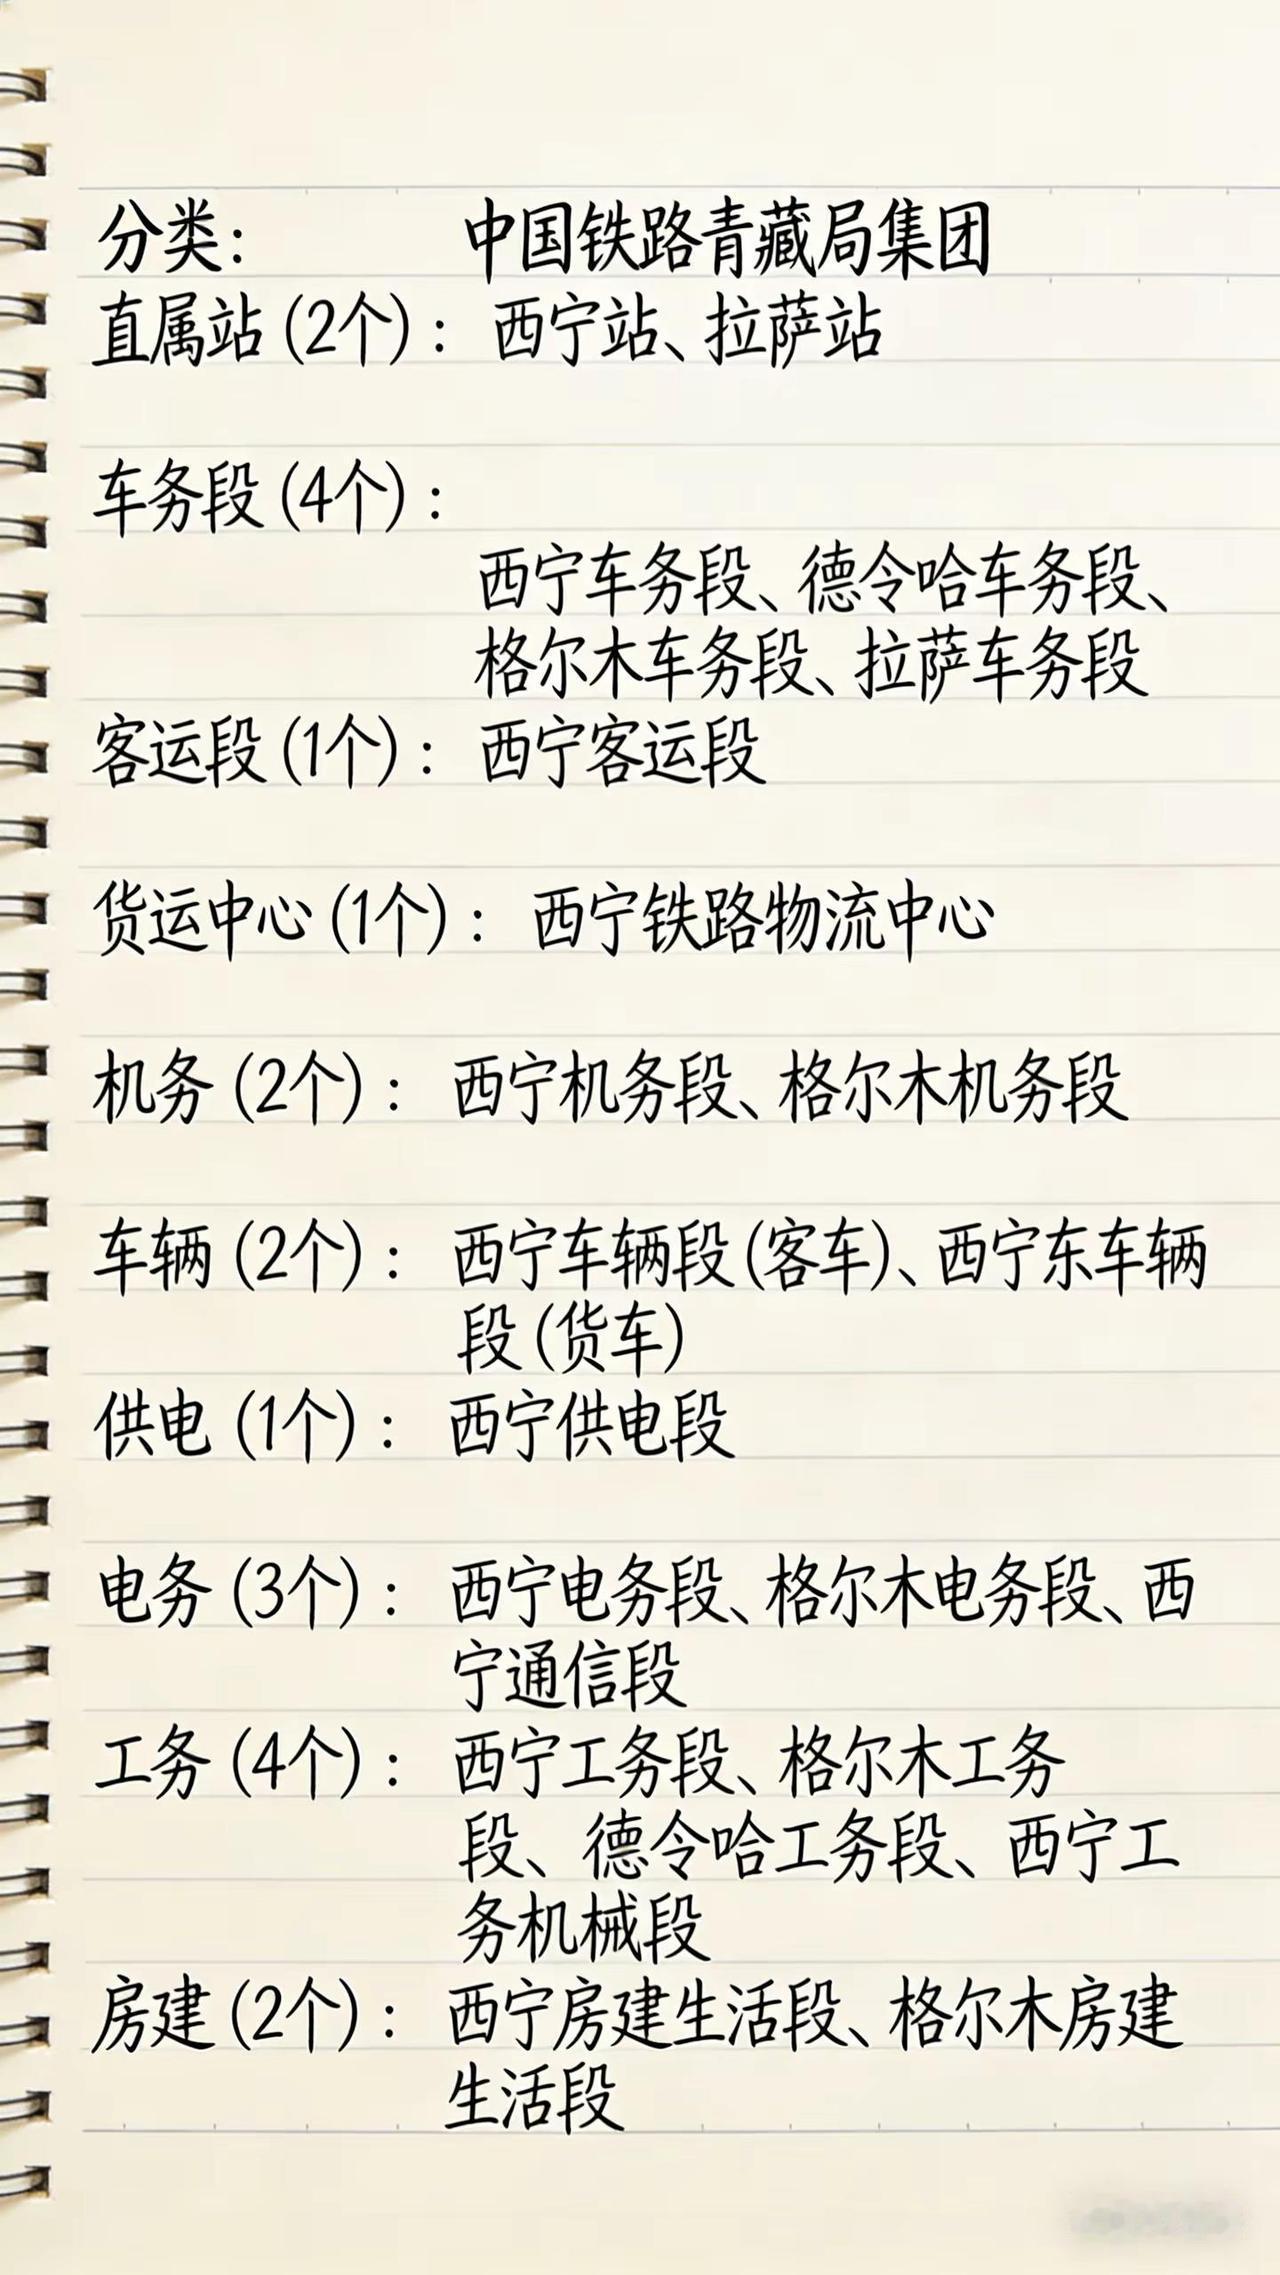 分类: 中国铁路青藏局集团
直属站(2个): 西宁站、拉萨站
车务段(4个):
西宁车务段、德令哈车务段、
格尔木车务段、拉萨车务段
客运段(1个): 西宁客运段
货运中心(1个): 西宁铁路物流中心
机务(2个): 西宁机务段、格尔木机务段
车辆(2个): 西宁车辆段(客车)、西宁东车辆
段(货车)
供电(1个): 西宁供电段
电务(3个): 西宁电务段、格尔木电务段、西
宁通信段
工务(4个): 西宁工务段、格尔木工务
段、德令哈工务段、西宁工
务机械段
房建(2个): 西宁房建生活段、格尔木房建
生活段